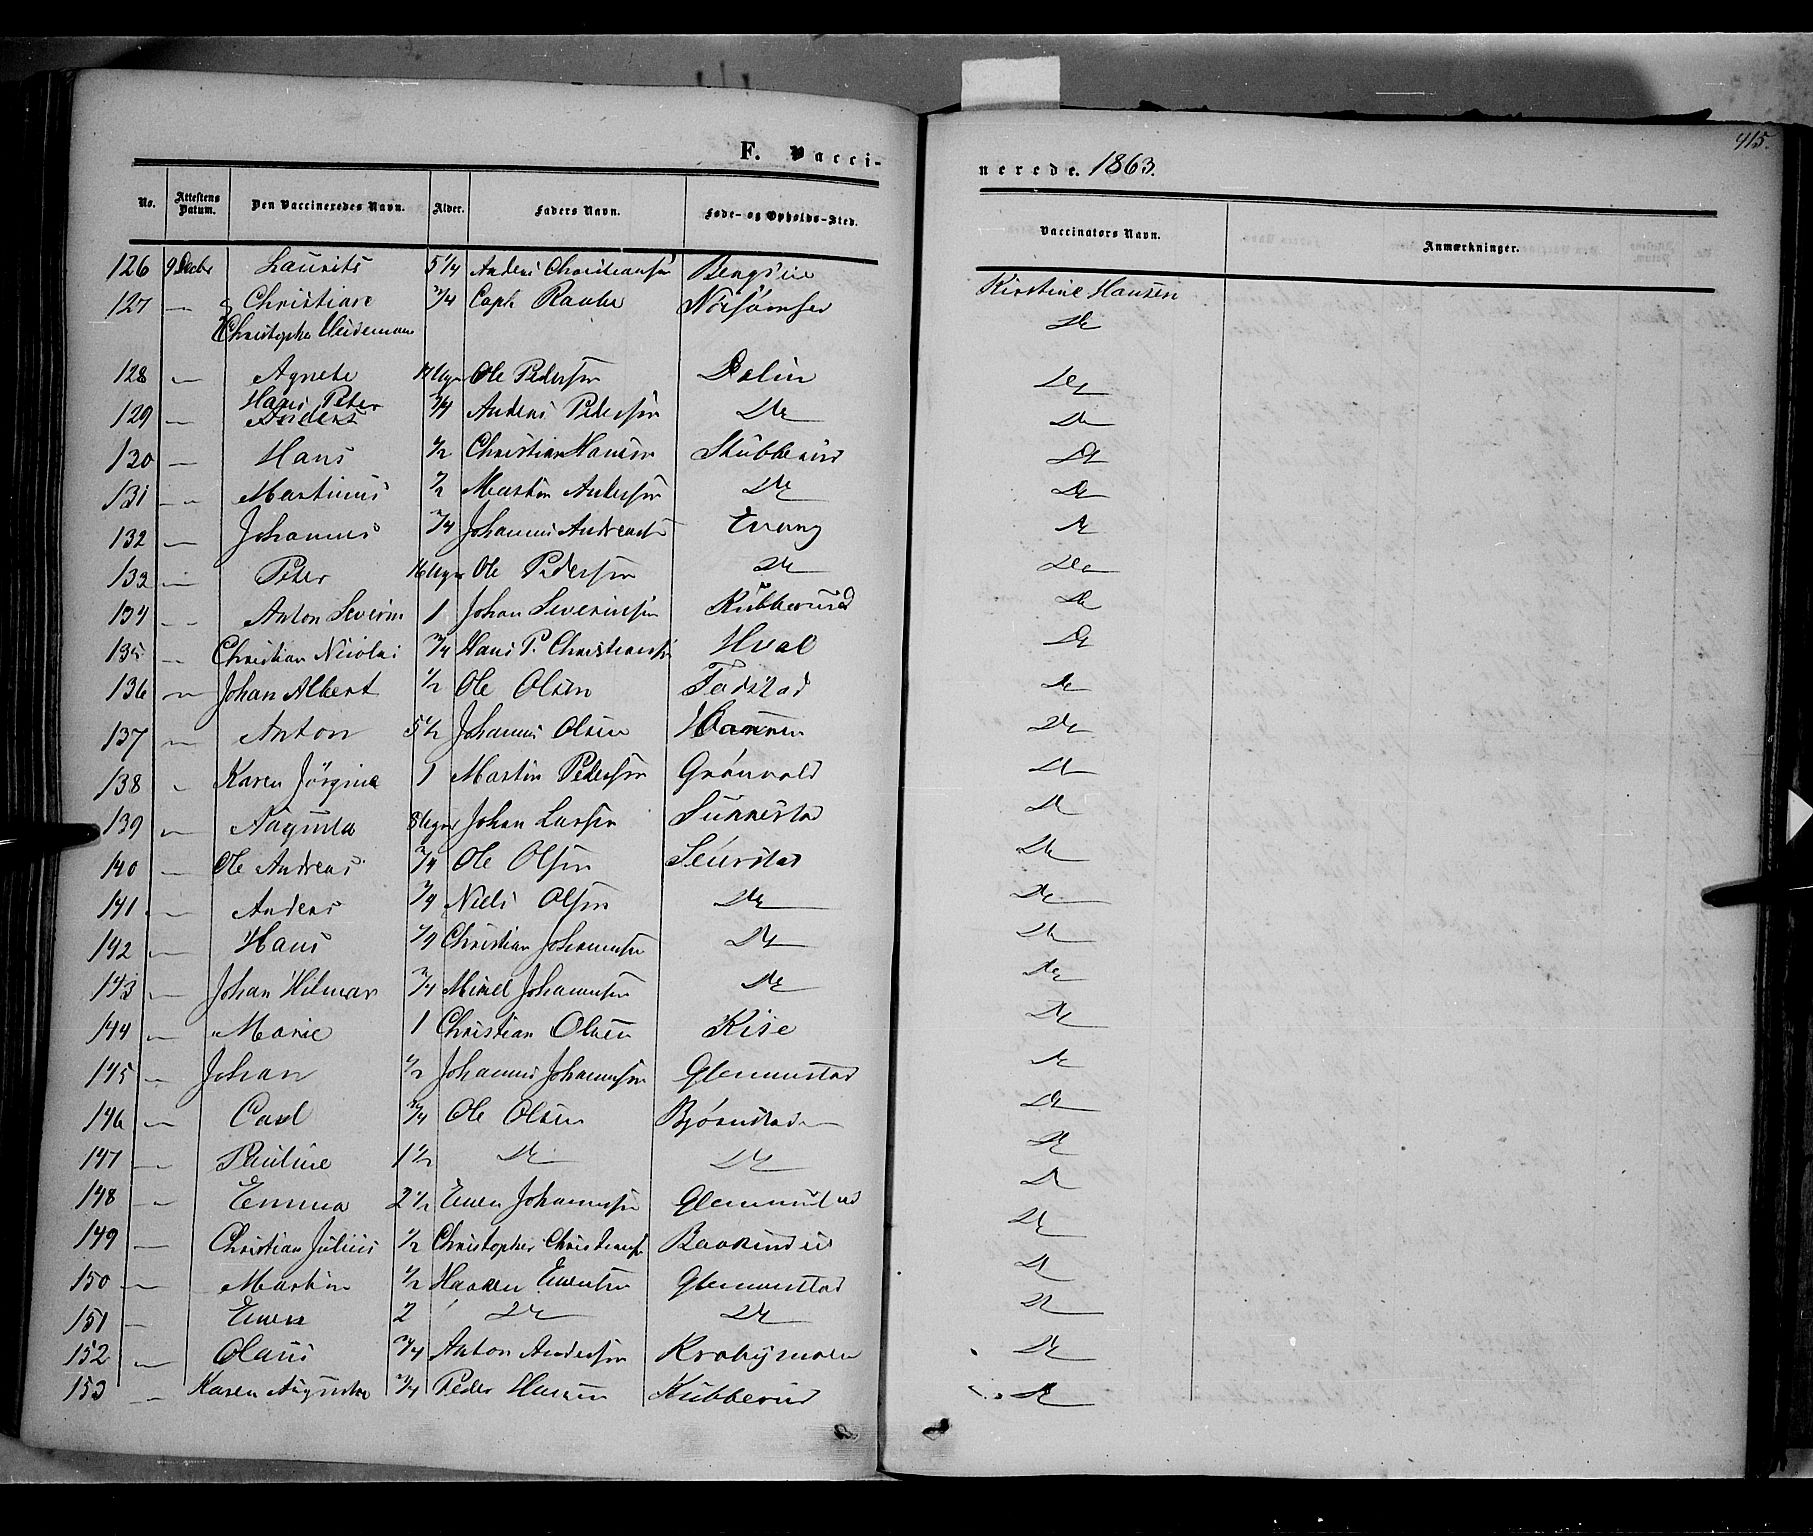 415.
F. Vacci-
nerede. 1863.
No. Attestens Datum. Den Vaccineredes Navn. Alder. Faders Navn. Føde- og Opholds-Sted. Vaccinators Navn. Anmærkninger.
126 9 Decbr Laurits 5 1/4 Anders Christiansen Kirstine Hansen
127 — Christian 3/4 Capt. De
Christopher
128 — Agnete Ugr Ole Pedersen Dolin De
129 — Hans Peter Anders 3/4 Anders Pedersen De De
130 — Hans 1/2 Christian Hansen Stubberud De
131 — Martinus 1/2 Martin Andersen De De
132 — Johannes 3/4 Johannes Andreasen Evang De
133 — Peter 16 Uger Ole Pedersen De De
134 — Anton Severin 1 Johan Severinsen Kubberud De
135 — Christian Nicolai 3/4 Hans P. Christiansen Hval De
136 — Johan Albert 1/2 Ole Olsen Fodstad De
137 — Anton 5 1/2 Johannes Olsen De
138 — Karen Jørgine 1 Martin Pedersen Grønvold De
139 — Augusta 8 Uger Johan Larsen Sunnestad De
140 — Ole Andreas 3/4 Ole Olsen De
141 — Anders 3/4 Niels Olsen De De
142 — Hans 1/4 Christian Johannesen De De
143 — Johan Hilmar 3/4 Mikel Johannesen De De
144 — Marie 1 Christian Olsen Kise De
145 — Johan 1/2 Johannes Johannesen Glemmestad De
146 — Carl 3/4 Ole Olsen Bjørnstad De
147 — Pauline 1 1/2 De De De
148 — Emma 2 1/2 Even Johannesen Glemmestad De
149 — Christian Julius 1/2 Christopher Christiansen De
150 — Martin 1/2 Haaken Evensen Glemmestad De
151 — Even 2 De De De
152 — Olaus 3/4 Anton Andersen Krabymoen De
153 — Karen Augusta 3/4 Peder Hansen Kubberud De